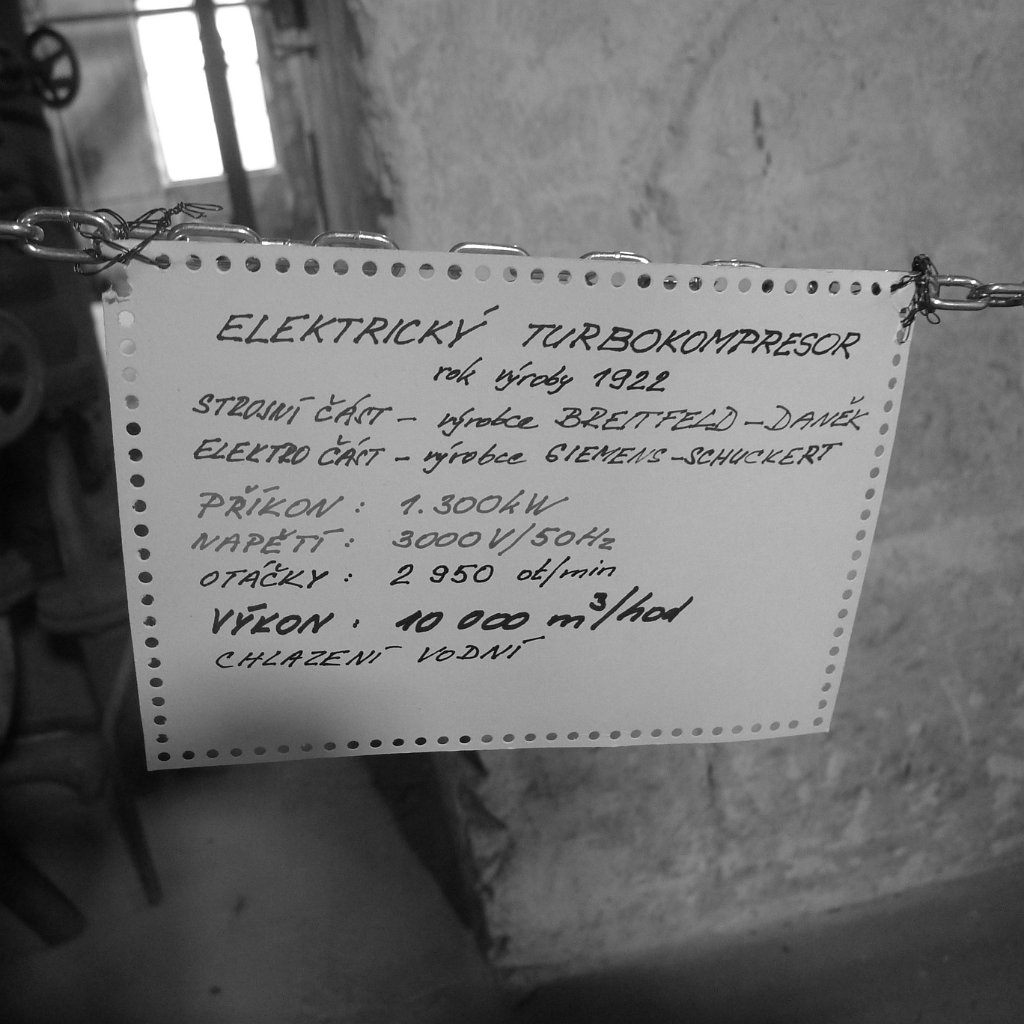 ELEKTRICKÝ TURBOKOMPRESOR
rok výroby 1922
STROJNÍ ČÁST – výrobce BREITFELD – DANĚK
ELEKTRO ČÁST – výrobce SIEMENS – SCHUCKERT
PŘÍKON : 1.300kW
NAPĚTÍ : 3000V/50Hz
OTÁČKY : 2 950 ot/min
VÝKON : 10 000 m³/hod
CHLAZENÍ VODNÍ